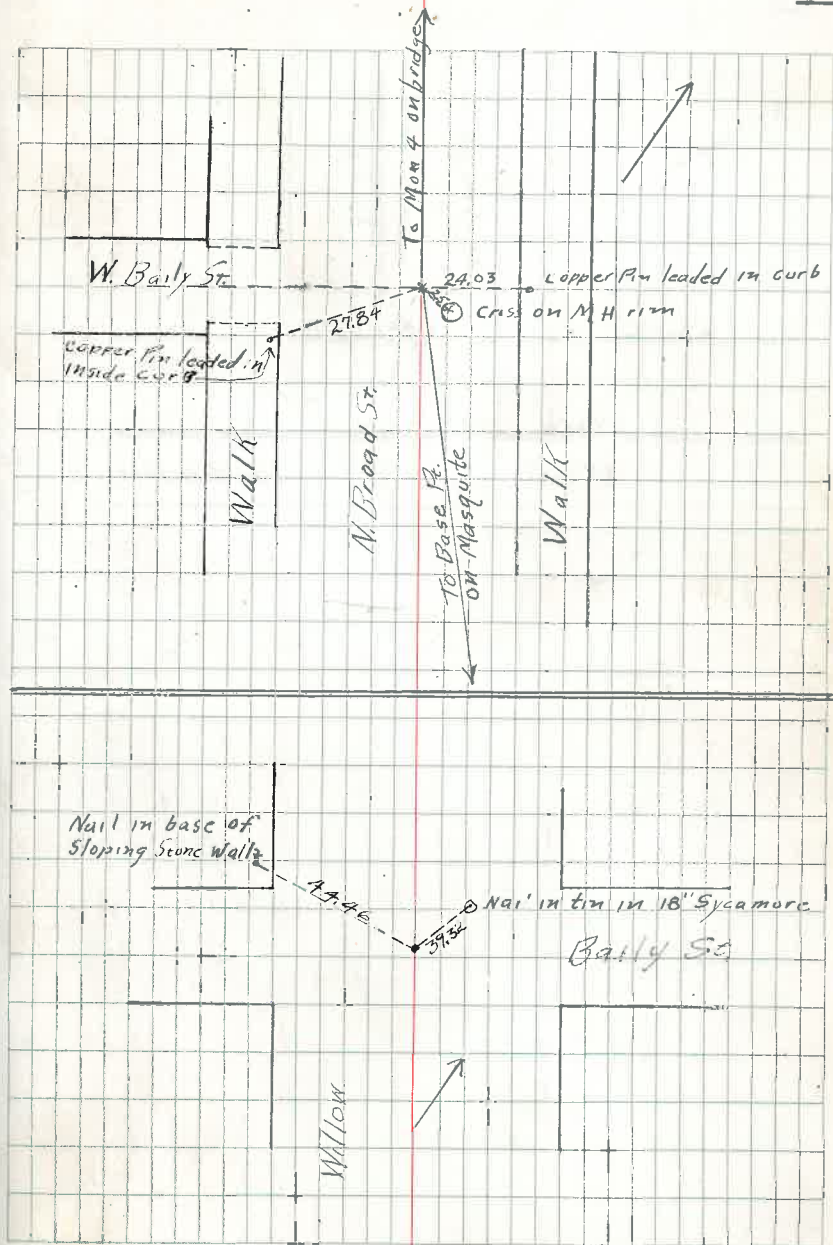 To Mon 4 on bridge
W. Baily St.
24.03
Copper Pin leaded in curb
Criss on M H rim
27.84
Copper Pin leaded in
inside curb
Walk
N. Broad St.
To Base Pt.
on Masquite
Walk
Nail in base of
Sloping Stone Wall
44.46
39.32
Nai' in tin in 18" Sycamore
Baily St
Willow